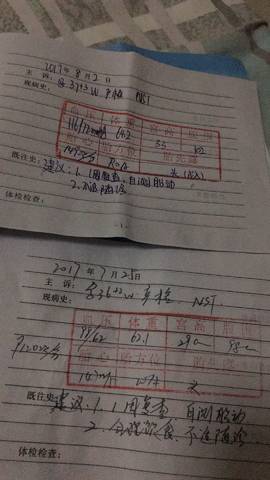 2017年8月2日
主诉：孕37+3w 产检 NST
现病史：
血压 体重 宫高 腹围
116/72 64.2 33 102
胎心 胎方位 胎先露
149次/分 ROA 头
既往史：建议：1. 1周复查，自测胎动
2. 不适随诊
体检检查：
- 1 -
2017年7月25日
主诉：孕36+2w 产检 NST
现病史：
血压 体重 宫高 腹围
99/62 63.1
胎心 胎方位 胎先露
头
既往史：建议：1. 1周复查，自测胎动
2. 合理饮食、不适随诊
体检检查：